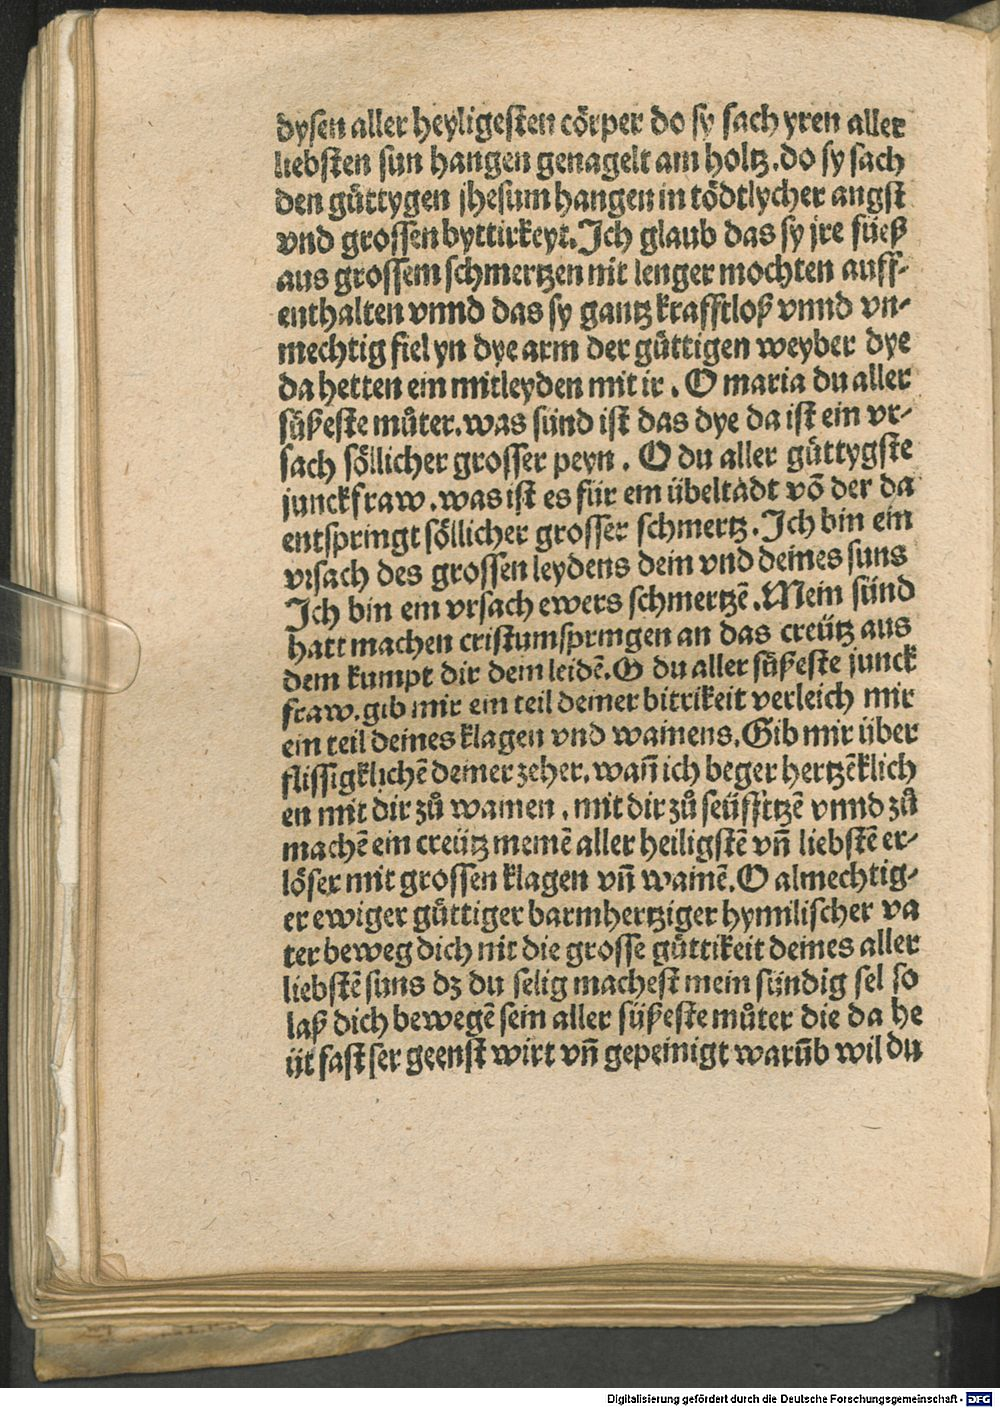 dysen aller heyligesten cörper do sy sach yren aller
liebsten sun hangen genagelt am holtz. do sy sach
den gůttygen jhesum hangen in tödtlycher angst
vnd grossen byttirkeyt. Ich glaub das sy jre füeß
aus grossem schmertzen nit lenger mochten auff-
enthalten vnnd das sy gantz krafftloß vnnd vn-
mechtig fiel yn dye arm der gůttigen weyber dye
da hetten ein mitleyden mit ir. O maria du aller
süßeste můter. was sünd ist das dye da ist ein vr-
sach söllicher grosser peyn. O du aller gůttygste
junckfraw. was ist es für ein übeltàdt võ der da
entspringt söllicher grosser schmertz. Ich bin ein
vrsach des grossen leydens dein vnd deines suns
Ich bin ein vrsach ewers schmertzē. Mein sünd
hatt machen cristum springen an das creütz aus
dem kumpt dir dein leidē. O du aller süßeste junck
fraw. gib mir ein teil deiner bitrikeit verleich mir
ein teil deines klagen vnd wainens. Gib mir über
flissigklichē deiner zeher. wañ ich beger hertzēklich
en mit dir zů wainen. mit dir zů seüffitzē vnnd zů
machē ein creütz meinē aller heiligstē vñ liebstē er-
löser mit grossen klagen vñ wainē. O almechtig-
er ewiger gůttiger barmhertziger hymlischer va
ter beweg dich nit die grosse gůttikeit deines aller
liebstē suns dz du selig machest mein sündig sel so
laß dich bewegē sein aller süßeste můter die da he
üt fast ser geenst wirt vñ gepeinigt warūb wil du
Digitalisierung gefördert durch die Deutsche Forschungsgemeinschaft - DFG